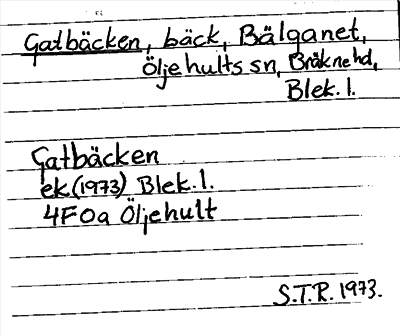 Gatbäcken, bäck, Bälganet,
Öljehults sn, Bräknehd,
Blek. l.
Gatbäcken
ek (1973) Blek. l.
4F0a Öljehult
S.T.R. 1973.